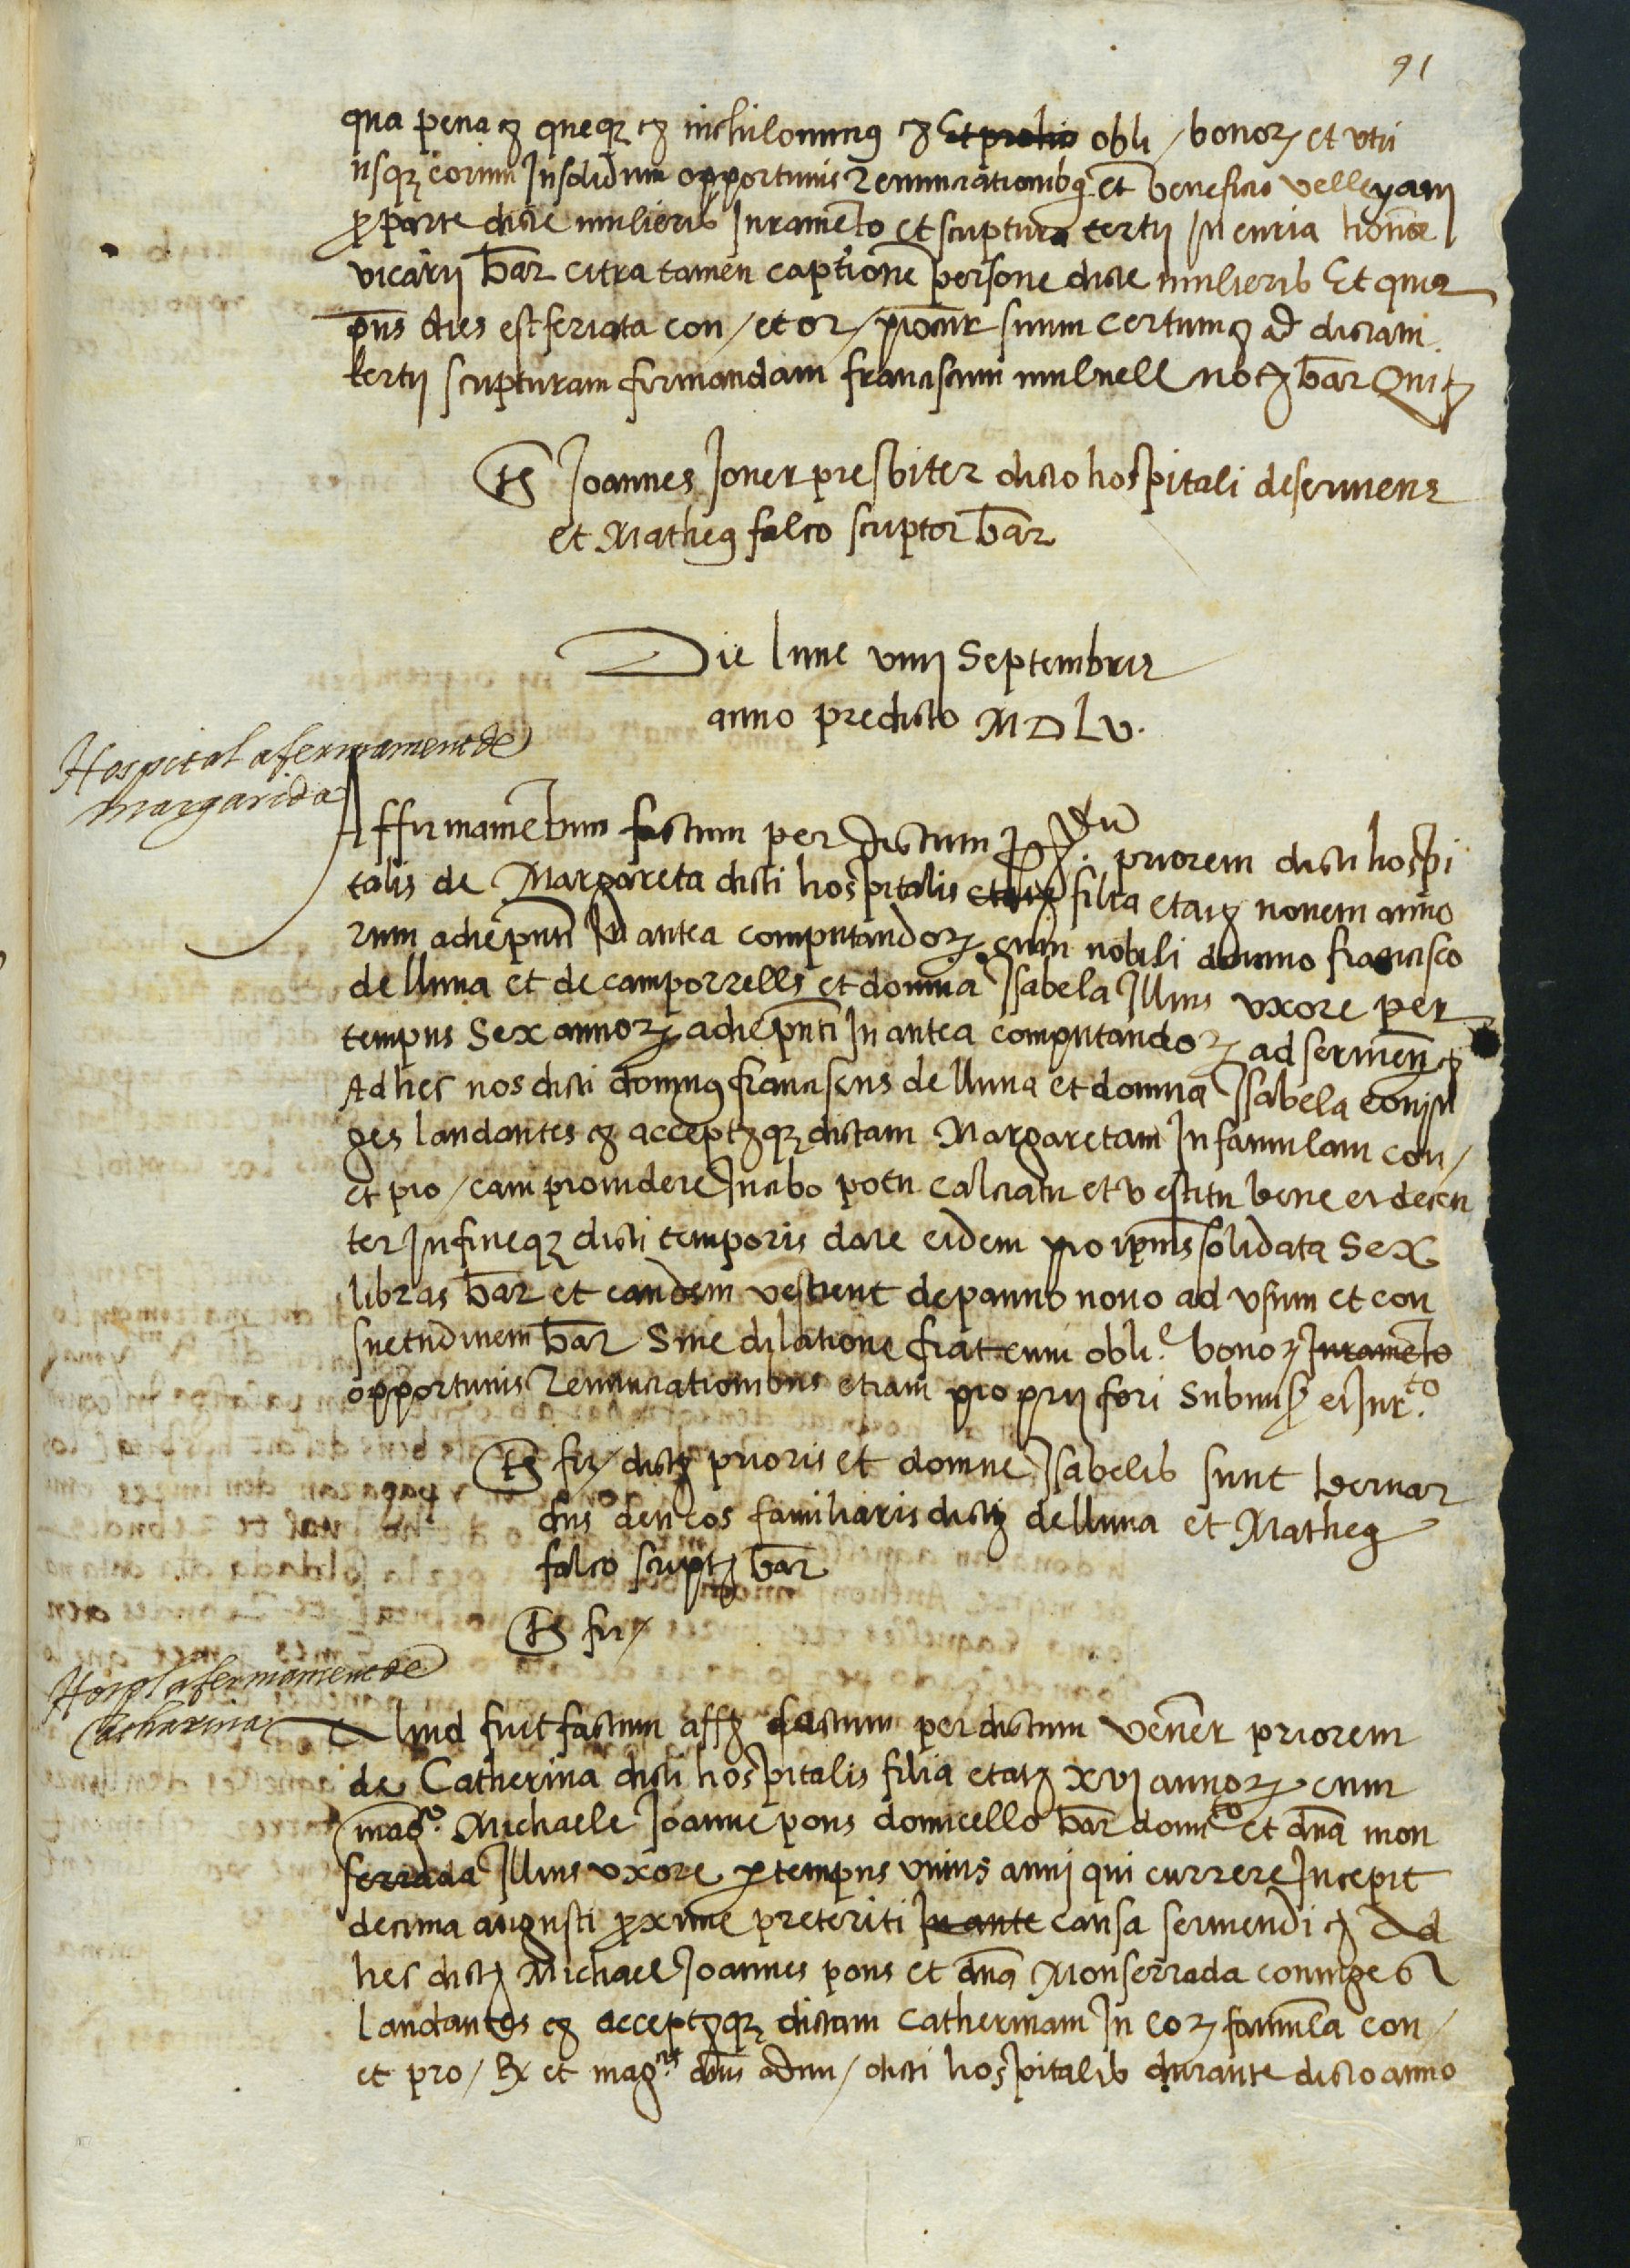 91
qua pena &c queq; &c nichilominus &c Et prelio obli / bonoꝝ et utri
usq; eorum Insolidum opportunis Renunciationibus et beneficio velleyani
ꝑ parte dicte mulieris Juramento et scriptura tertii In curia honor
vicarii bar citra tamen captione persone dicte mulieris Et quia
pñs dies est feriata con / et or / procur suum certum &c ad dictam
tertii scripturam firmandam franciscum mulnell not bar Qui &c
Ts Joannes Joner presbiter dicto hospitali deserviens
et Matheus falco scriptor bar
Die lune viiij Septembris
anno predicto MDLV.
Hospital afermament de
margarida
Affirmamẽtum factum per dictum Rdũ. priorem dicti hospi
talis de Margareta dicti hospitalis etatis filia etatis novem anno
rum adiepñti In antea computandoꝝ cum nobili domno francisco
de lluna et de camporrells et domna Isabela Illius uxore per
tempus Sex annoꝝ adiepñti In antea computandoꝝ ad servien &c
Ad hec nos dicti domnus franciscus de lluna et domna Isabela coniu
ges laudantes &c acceptqꝫ dictam Margaretam In famulam con /
et pro / eam providere In cibo potu calciatu et vestitu bene et decen
ter In fineqꝫ dicti temporis dare eidem pro ipius solidata Sex
libras bar et eandem vestient de panno novo ad usum et con
suetudinem bar Sine dilatione fiat cum obli.e bonoꝝ Juramẽto
opportunis Renunciationibus etiam proprii fori Submis et Jur.to
Ts fir / dict prioris et domne Isabelis sunt bernar
dus den cos familiaris dict de lluna et Matheus
falco script bar
Ts fir /
Hospl afermament de
Catharina
Aliud fuit factum aff factum per dictum vener priorem
de Catherina dicti hospitalis filia etat xvj annoꝝ cum
mag.co Michaele Joanne pons domicello bar domi.to et dña mon
serrada Illius uxore ꝑ tempus unius anni qui currere Incepit
decima augusti ꝓxime preteriti In ante causa serviendi &c Ad
hec dict Michael Joannes pons et dña Monserrada coniuges
laudantes &c acceptqꝫ dictam Catherinam In eoꝝ famula con /
et pro / Rx et mag.cis dñis admi / dicti hospitalis durante dicto anno